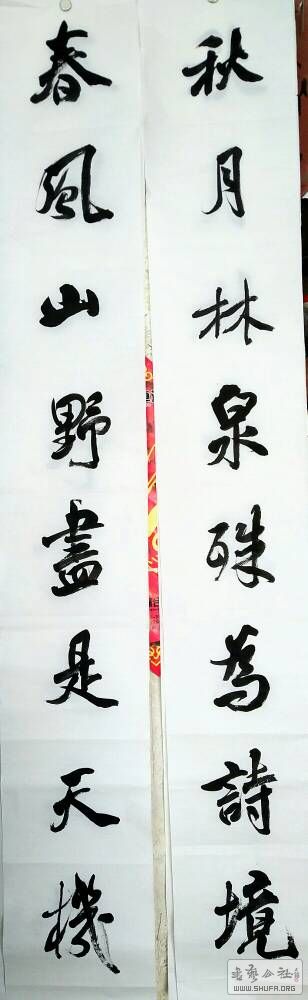 秋月林泉殊為詩境
春風山野盡是天機
WWW.SHUFA.ORG